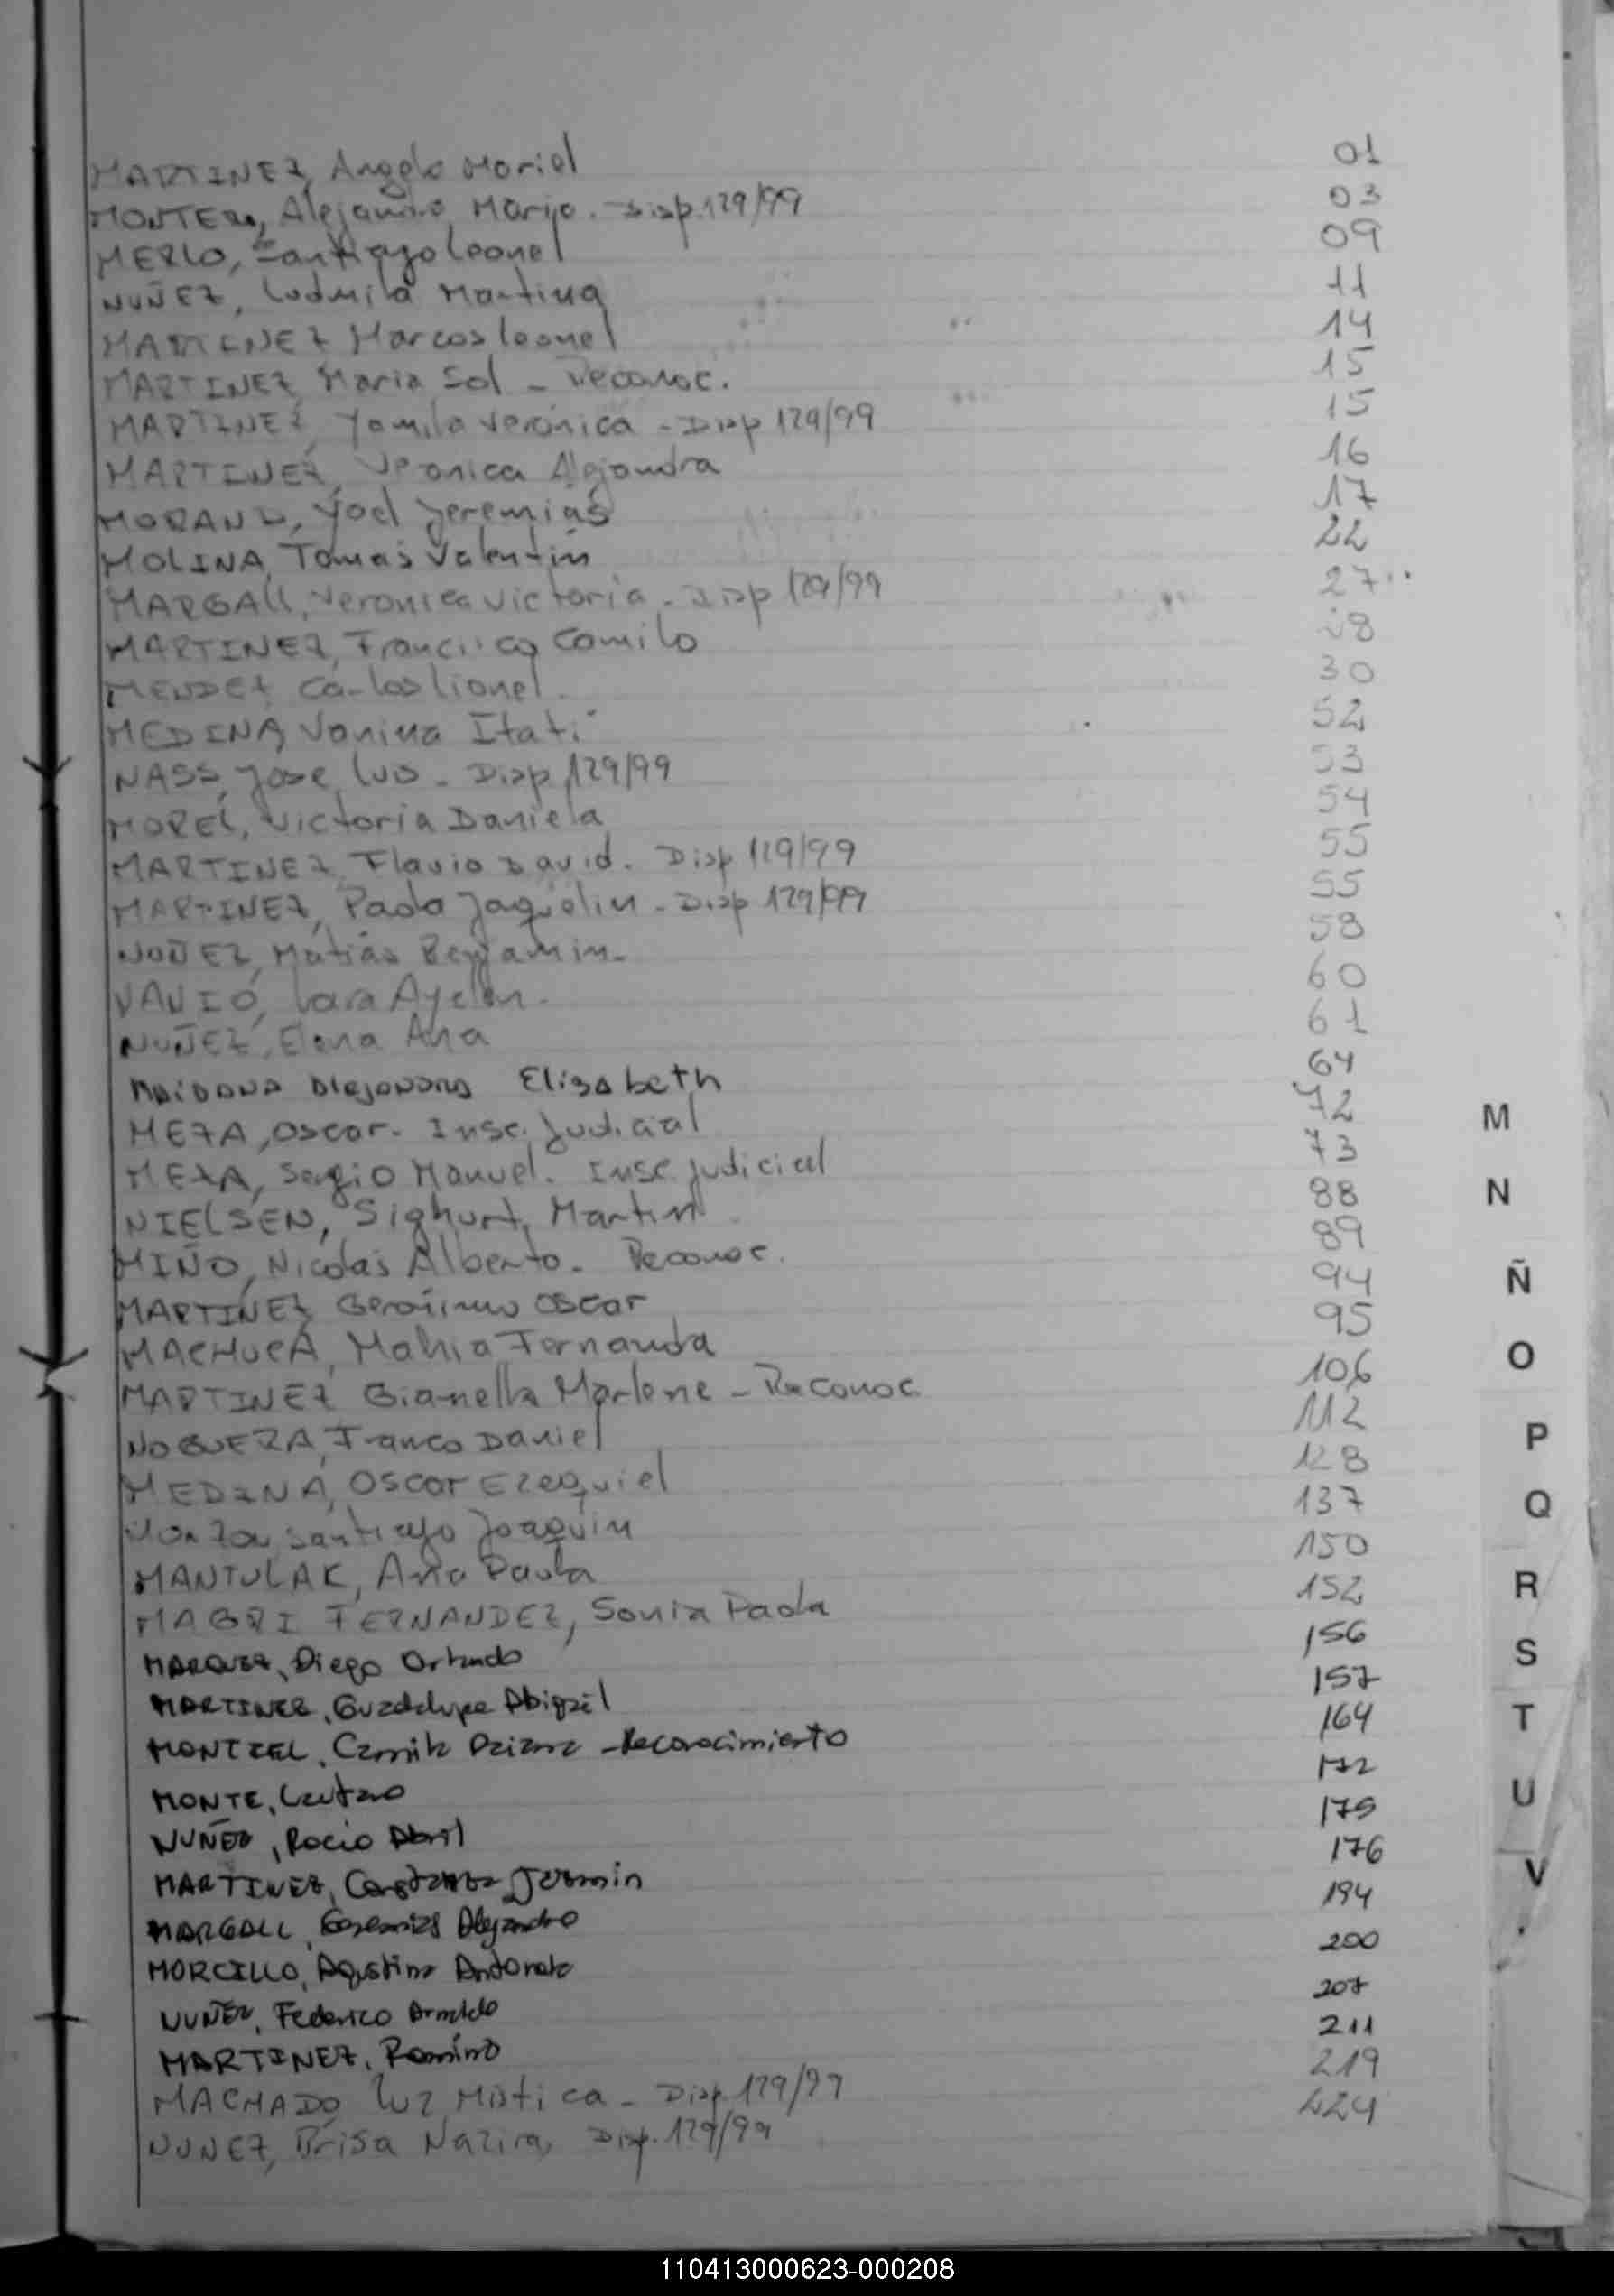 MARTINEZ, Angelo Mariel 01
MONTERO, Alejandro Mario. Disp. 129/99 03
MERLO, Santiago Leonel 09
NUÑEZ, Ludmila Martina 11
MARTINEZ Marcos Leonel 14
MARTINEZ, Maria Sol - Reconoc. 15
MARTINEZ, Yamila Verónica - Disp 129/99 15
MARTINEZ, Veronica Alejandra 16
MORAND, Yoel Jeremias 17
MOLINA, Tomás Valentin 22
MARGALL, Veronica Victoria - Disp 129/99 27
MARTINEZ, Francisco Camilo 28
MENDEZ Carlos Lionel 30
MEDINA, Vanina Itati 52
NASS, Jose Luis - Disp 129/99 53
MOREL, Victoria Daniela 54
MARTINEZ, Flavio David. Disp 129/99 55
MARTINEZ, Paola Jaquelin - Disp 129/99 55
NUÑEZ, Matias Benjamin - 58
Lara Ayelen - 60
NUÑEZ, Elena Ana 61
MAIDANA Alejandra Elisabeth 64
MEZA, Oscar. Insc. Judicial 72
MEZA, Sergio Manuel. Insc. Judicial 73
NIELSEN, Sighurt, Martin 88
MIÑO, Nicolás Alberto - Reconoc. 89
MARTINEZ Gerónimo Oscar 94
MACHUCA, Mahia Fernanda 95
MARTINEZ Gianella Marlene - Reconoc 106
NOGUERA, Franco Daniel 112
MEDINA, Oscar Ezequiel 128
Monzon, Santiago Joaquin 137
MANTULAK, Ana Paula 150
MAGRI FERNANDEZ, Sonia Paola 152
MARQUEZ, Diego Orlando 156
MARTINEZ, Guadalupe Abigail 157
MONTIEL, Camila Daiana - Reconocimiento 164
MONTE, Lautaro 172
NUÑEZ, Rocio Abril 175
MARTINEZ, Constanza Jazmin 176
MARGALL, Alejandro 194
MORCILLO, Agustina Antonela 200
NUÑEZ, Federico Arnaldo 207
MARTINEZ, Ramiro 211
MACHADO Luz Mistica - Disp. 129/99 219
NUNEZ, Brisa Nazira, Disp. 129/99 424
M
N
Ñ
O
P
Q
R
S
T
U
V
110413000623-000208